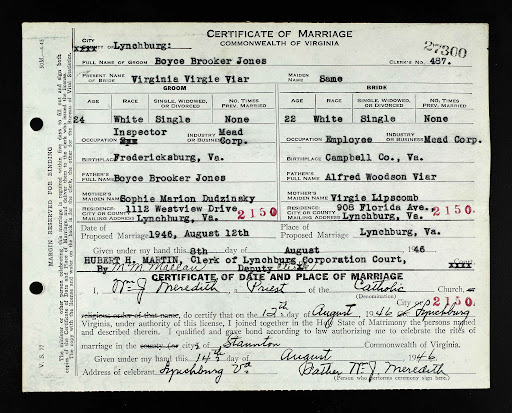 CERTIFICATE OF MARRIAGE
COMMONWEALTH OF VIRGINIA
27300
CITY Lynchburg:
FULL NAME OF GROOM Boyce Brooker Jones CLERK'S NO. 487.
PRESENT NAME OF BRIDE Virginia Virgie Viar MAIDEN NAME Same
GROOM BRIDE
AGE RACE SINGLE, WIDOWED, OR DIVORCED NO. TIMES PREV. MARRIED AGE RACE SINGLE, WIDOWED, OR DIVORCED NO. TIMES PREV. MARRIED
24 White Single None 22 White Single None
OCCUPATION Inspector INDUSTRY OR BUSINESS Mead Corp. OCCUPATION Employee INDUSTRY OR BUSINESS Mead Corp.
BIRTHPLACE Fredericksburg, Va. BIRTHPLACE Campbell Co., Va.
FATHER'S FULL NAME Boyce Brooker Jones FATHER'S FULL NAME Alfred Woodson Viar
MOTHER'S MAIDEN NAME Sophie Marion Dudzinsky MOTHER'S MAIDEN NAME Virgie Lipscomb
RESIDENCE: CITY OR COUNTY MAILING ADDRESS 1112 Westview Drive Lynchburg, Va. 2150 RESIDENCE: CITY OR COUNTY MAILING ADDRESS 908 Florida Ave. Lynchburg, Va. 2150
Date of Proposed Marriage 1946, August 12th Place of Proposed Marriage Lynchburg, Va.
Given under my hand this 8th day of August 1946
HUBERT H. MARTIN, Clerk of Lynchburg Corporation Court,
By Deputy Clerk
CERTIFICATE OF DATE AND PLACE OF MARRIAGE
I, Wm J Meredith a Priest of the Catholic Church, or
(Denomination)
2150
religious order of that name, do certify that on the 12th day of August 1946 at Lynchburg
Virginia, under authority of this license, I joined together in the Holy State of Matrimony the persons named
and described herein. I qualified and gave bond according to law authorizing me to celebrate the rites of
marriage in the county (or city) of Staunton Commonwealth of Virginia.
Given under my hand this 14th day of August 1946.
Address of celebrant Lynchburg Va Father Wm J. Meredith
(Person who performs ceremony sign here.)
MARGIN RESERVED FOR BINDING
V. S. 37